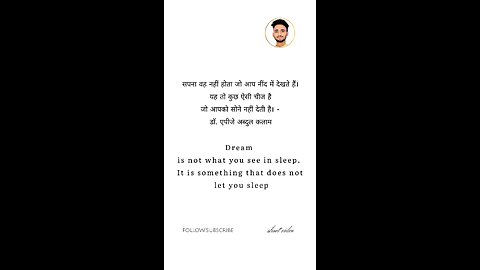 सपना वह नहीं होता जो आप नींद में देखते हैं।
यह तो कुछ ऐसी चीज है
जो आपको सोने नहीं देती है। -
डॉ. एपीजे अब्दुल कलाम
Dream
is not what you see in sleep.
It is something that does not
let you sleep
FOLLOW/SUBSCRIBE